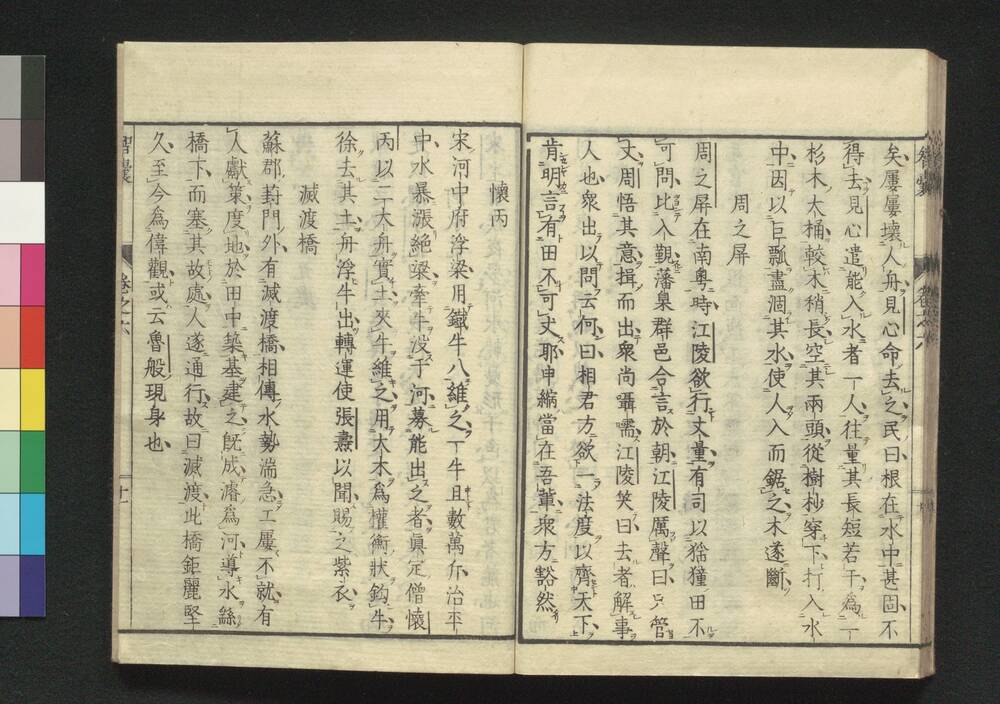 矣屢屢壞人舟見心命去之民曰根在水中甚固不
得去見心遣能入水者一人往量其長短若干為一
杉木大桶較木稍長空其兩頭從樹杪穿下打入水
中因以巨瓢盡涸其水使人入而鋸之木遂斷
周之屏
周之屏在南粵時江陵欲行丈量有司以猺獞田不
可問比入覲藩臬群邑合言於朝江陵厲聲曰只管
丈周悟其意揖而出衆尚囁嚅江陵笑曰去者解事
人也衆出以問云何曰相君方欲一法度以齊天下
肯明言有田不可丈耶申縮當在吾輩衆方豁然
懷丙
宋河中府浮梁用鐵牛八維之一牛且數萬斤治平
中水暴漲絕梁牽牛沒于河募能出之者眞定僧懷
丙以二大舟實土夾牛維之用大木為權衡狀鈎牛
徐去其土舟浮牛出轉運使張燾以聞賜之紫衣
滅渡橋
蘇郡葑門外有滅渡橋相傳水勢湍急工屢不就有
人獻策度地於田中築基建之旣成濬為河導水繇
橋下而塞其故處人遂通行故曰滅渡此橋鉅麗堅
久至今為偉觀或云魯般現身也
智囊
卷之六
十一